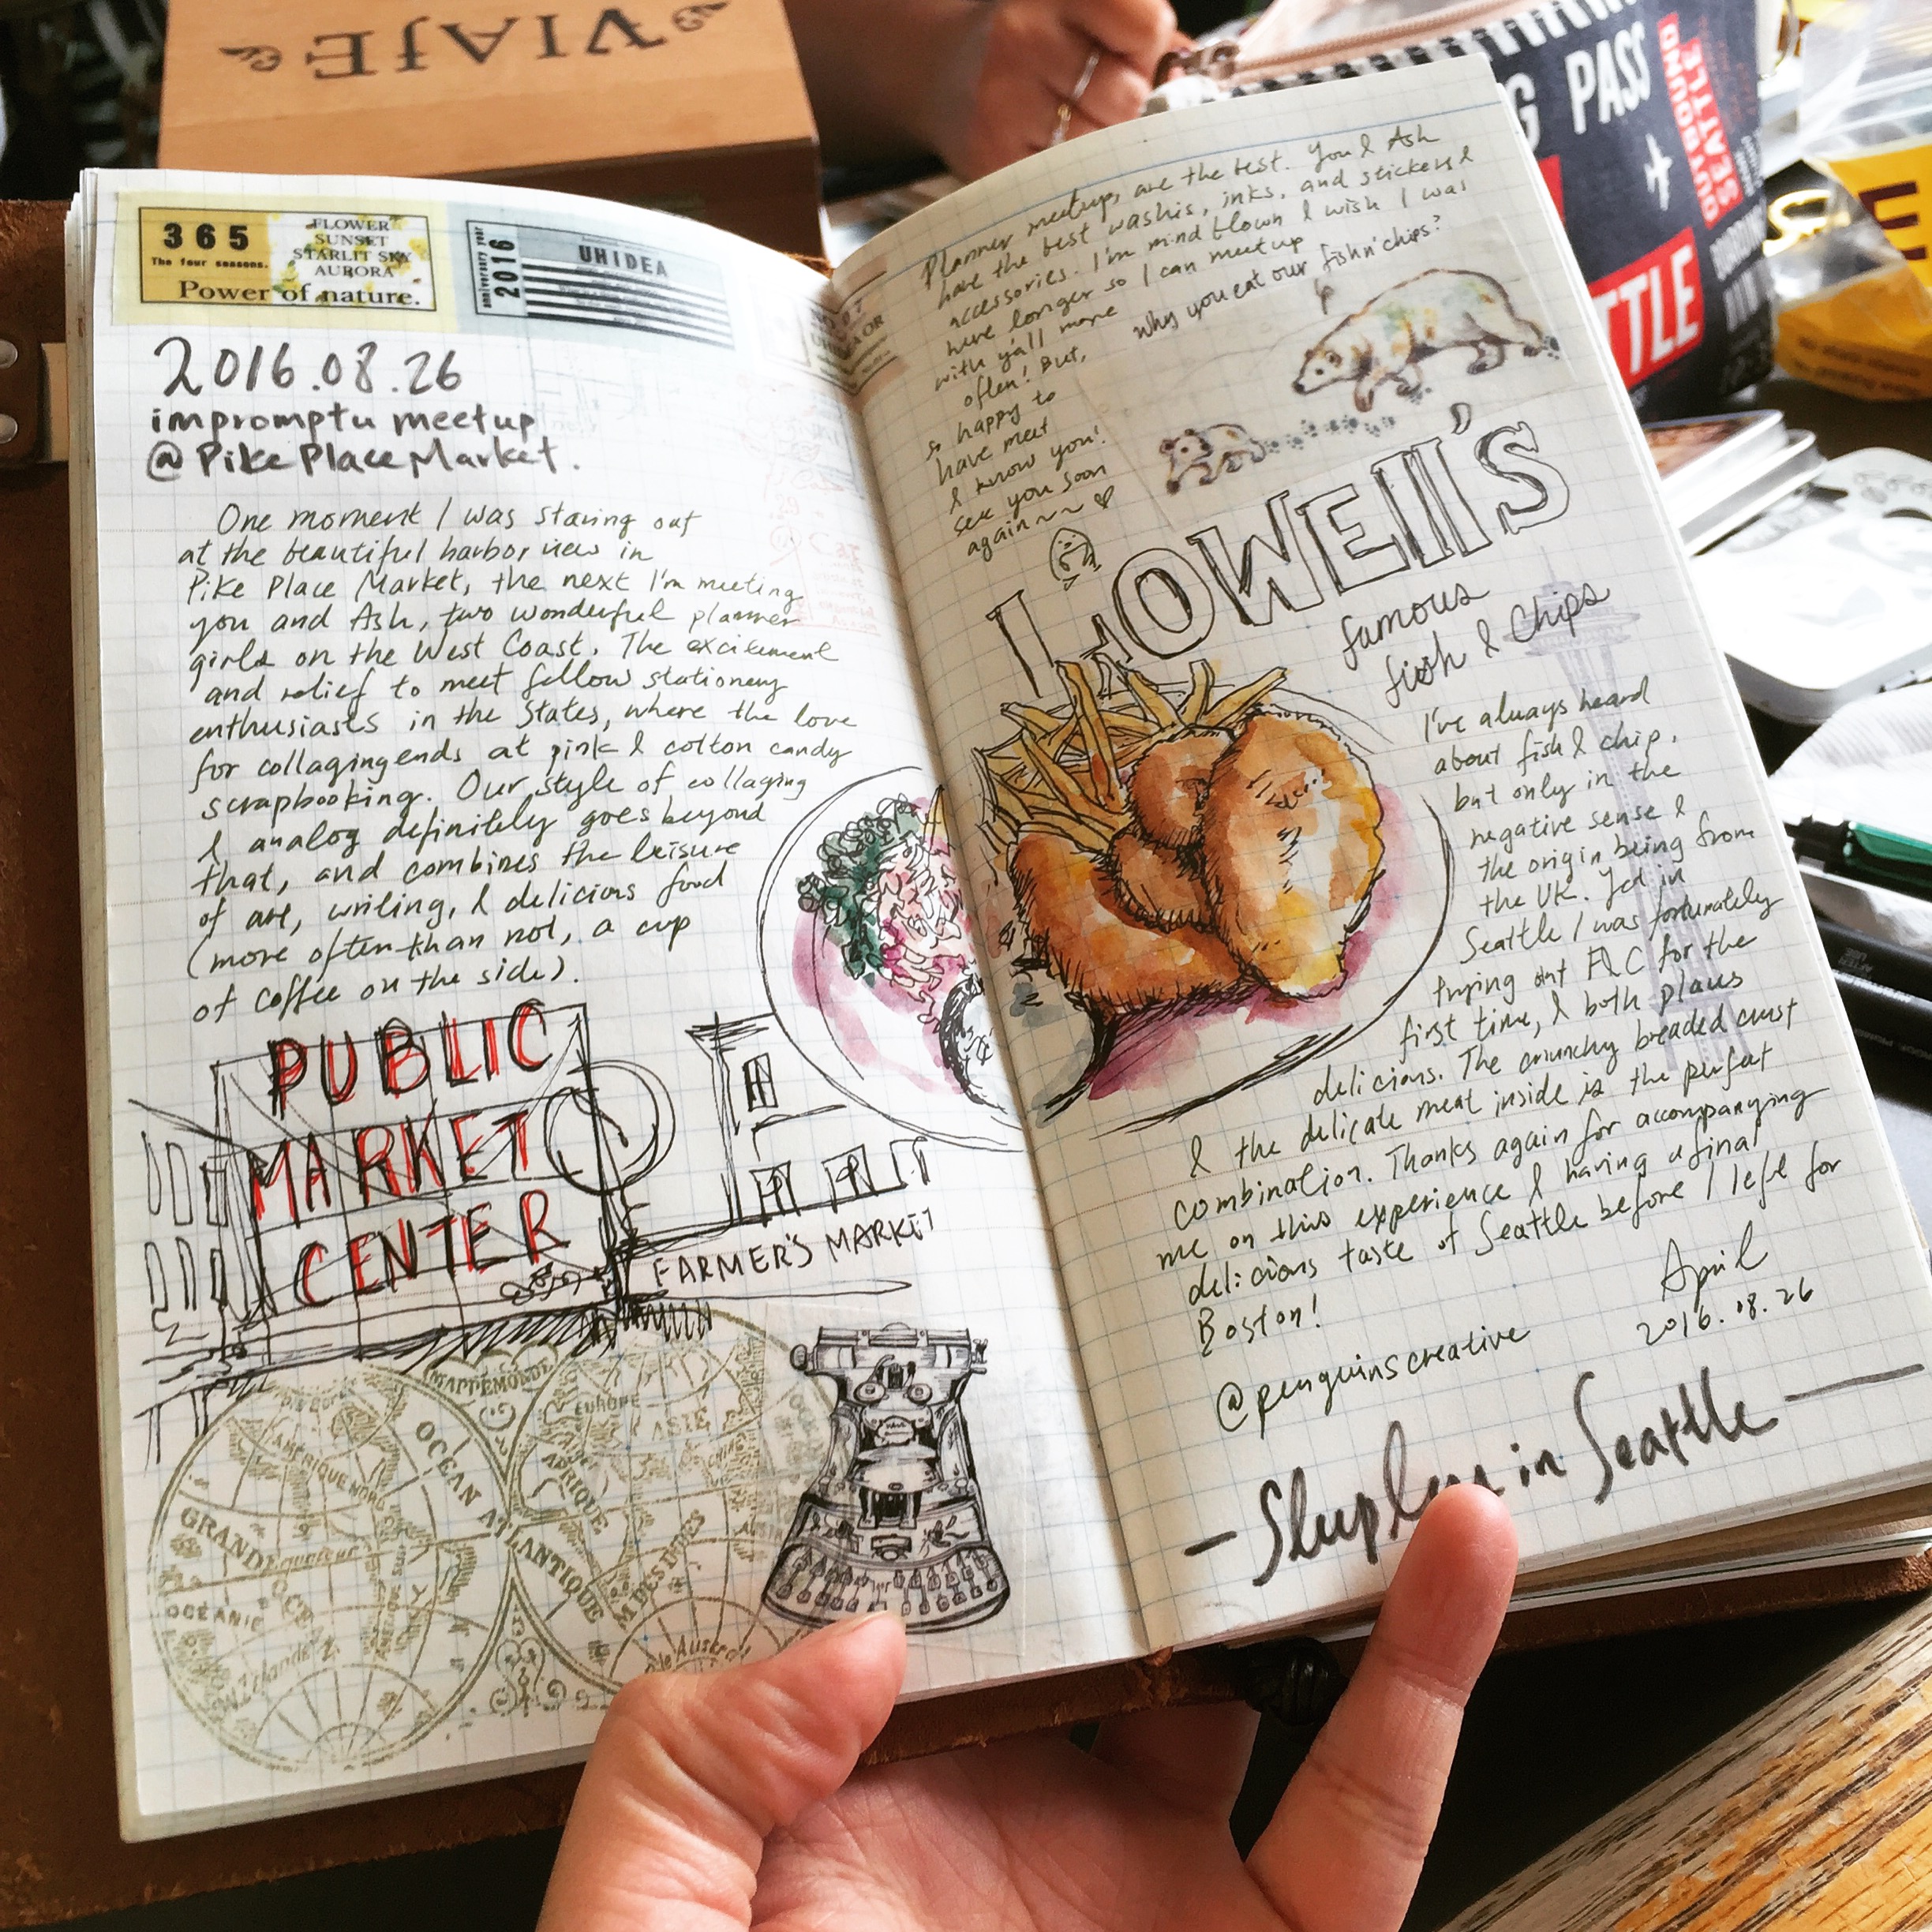 VIAJE
G PASS
OUTBOUND
SEATTLE
TTLE
E
365
The four seasons.
FLOWER
SUNSET
STARLIT SKY
AURORA
Power of nature.
anniversary year
2016
UHIDEA
2016.08.26
impromptu meetup
@ Pike Place Market.
One moment I was staring out
at the beautiful harbor view in
Pike Place Market, the next I'm meeting
you and Ash, two wonderful planner
girls on the West Coast. The excitement
and relief to meet fellow stationery
enthusiasts in the States, where the love
for collaging ends at pink & cotton candy
scrapbooking. Our style of collaging
& analog definitely goes beyond
that, and combines the leisure
of art, writing, & delicious food
(more often than not, a cup
of coffee on the side).
PUBLIC
MARKET
CENTER
FARMER'S MARKET
MAPPEMONDE
AMÉRIQUE NORD
OCÉAN ATLANTIQUE
EUROPE
ASIE
CHINE
AFRIQUE
GRAND OCÉAN
Equateur
OCÉANIE
AMÉRIQUE SUD
M DES INDES
Planner meetups are the best. You & Ash
have the best washis, inks, and stickers &
accessories. I'm mind blown & wish I was
here longer so I can meet up
with y'all more
often! But,
so happy to
have meet
& know you!
see you soon
again~~ ♡
Why you eat our fish n' chips?
LOWEll'S
famous
fish & chips
I've always heard
about fish & chip,
but only in the
negative sense &
the origin being from
the UK. Yet in
Seattle I was fortunately
trying out F&C for the
first time, & both plaus
delicious. The crunchy breaded crust
& the delicate meat inside is the perfect
combination. Thanks again for accompanying
me on this experience & having a final
delicious taste of Seattle before I left for
Boston!
April
2016.08.26
@penguinscreative
- Sleepless in Seattle -